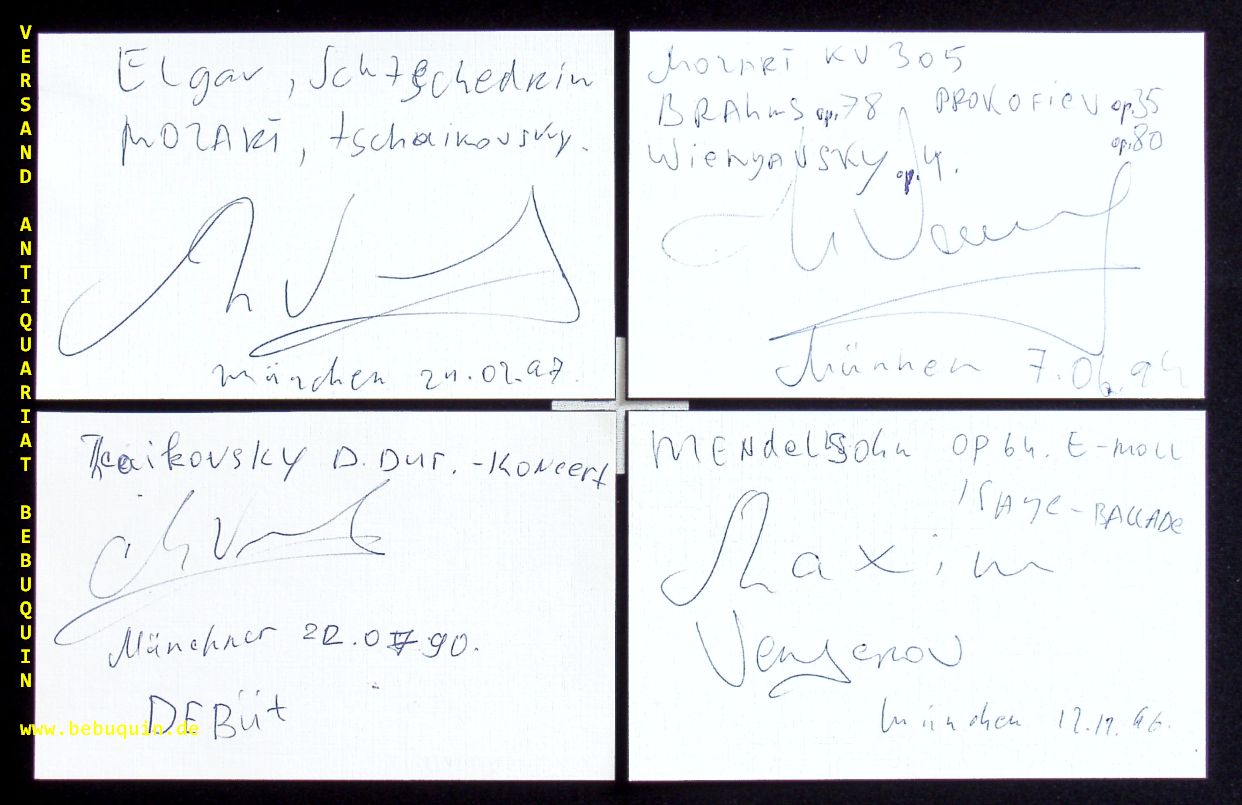 VERSAND ANTIQUARIAT BEBUQUIN
Elgar, Schtschedrin
MOZART, tschaikovsky.
München 24.02.97.
MOZART KV 305
BRAHMS op.78 PROKOFIEV op.35
op.80
WIENYAVSKY op.4.
München 7.06.94
Tcaikovsky D.Dur.-Koncert
Münchner 22.07.90.
DEBüt
MENdelSSohn OP 64. E-moll
ISAYE-BALLADE
Maxim
Vengerov
München 12.11.96.
www.bebuquin.de